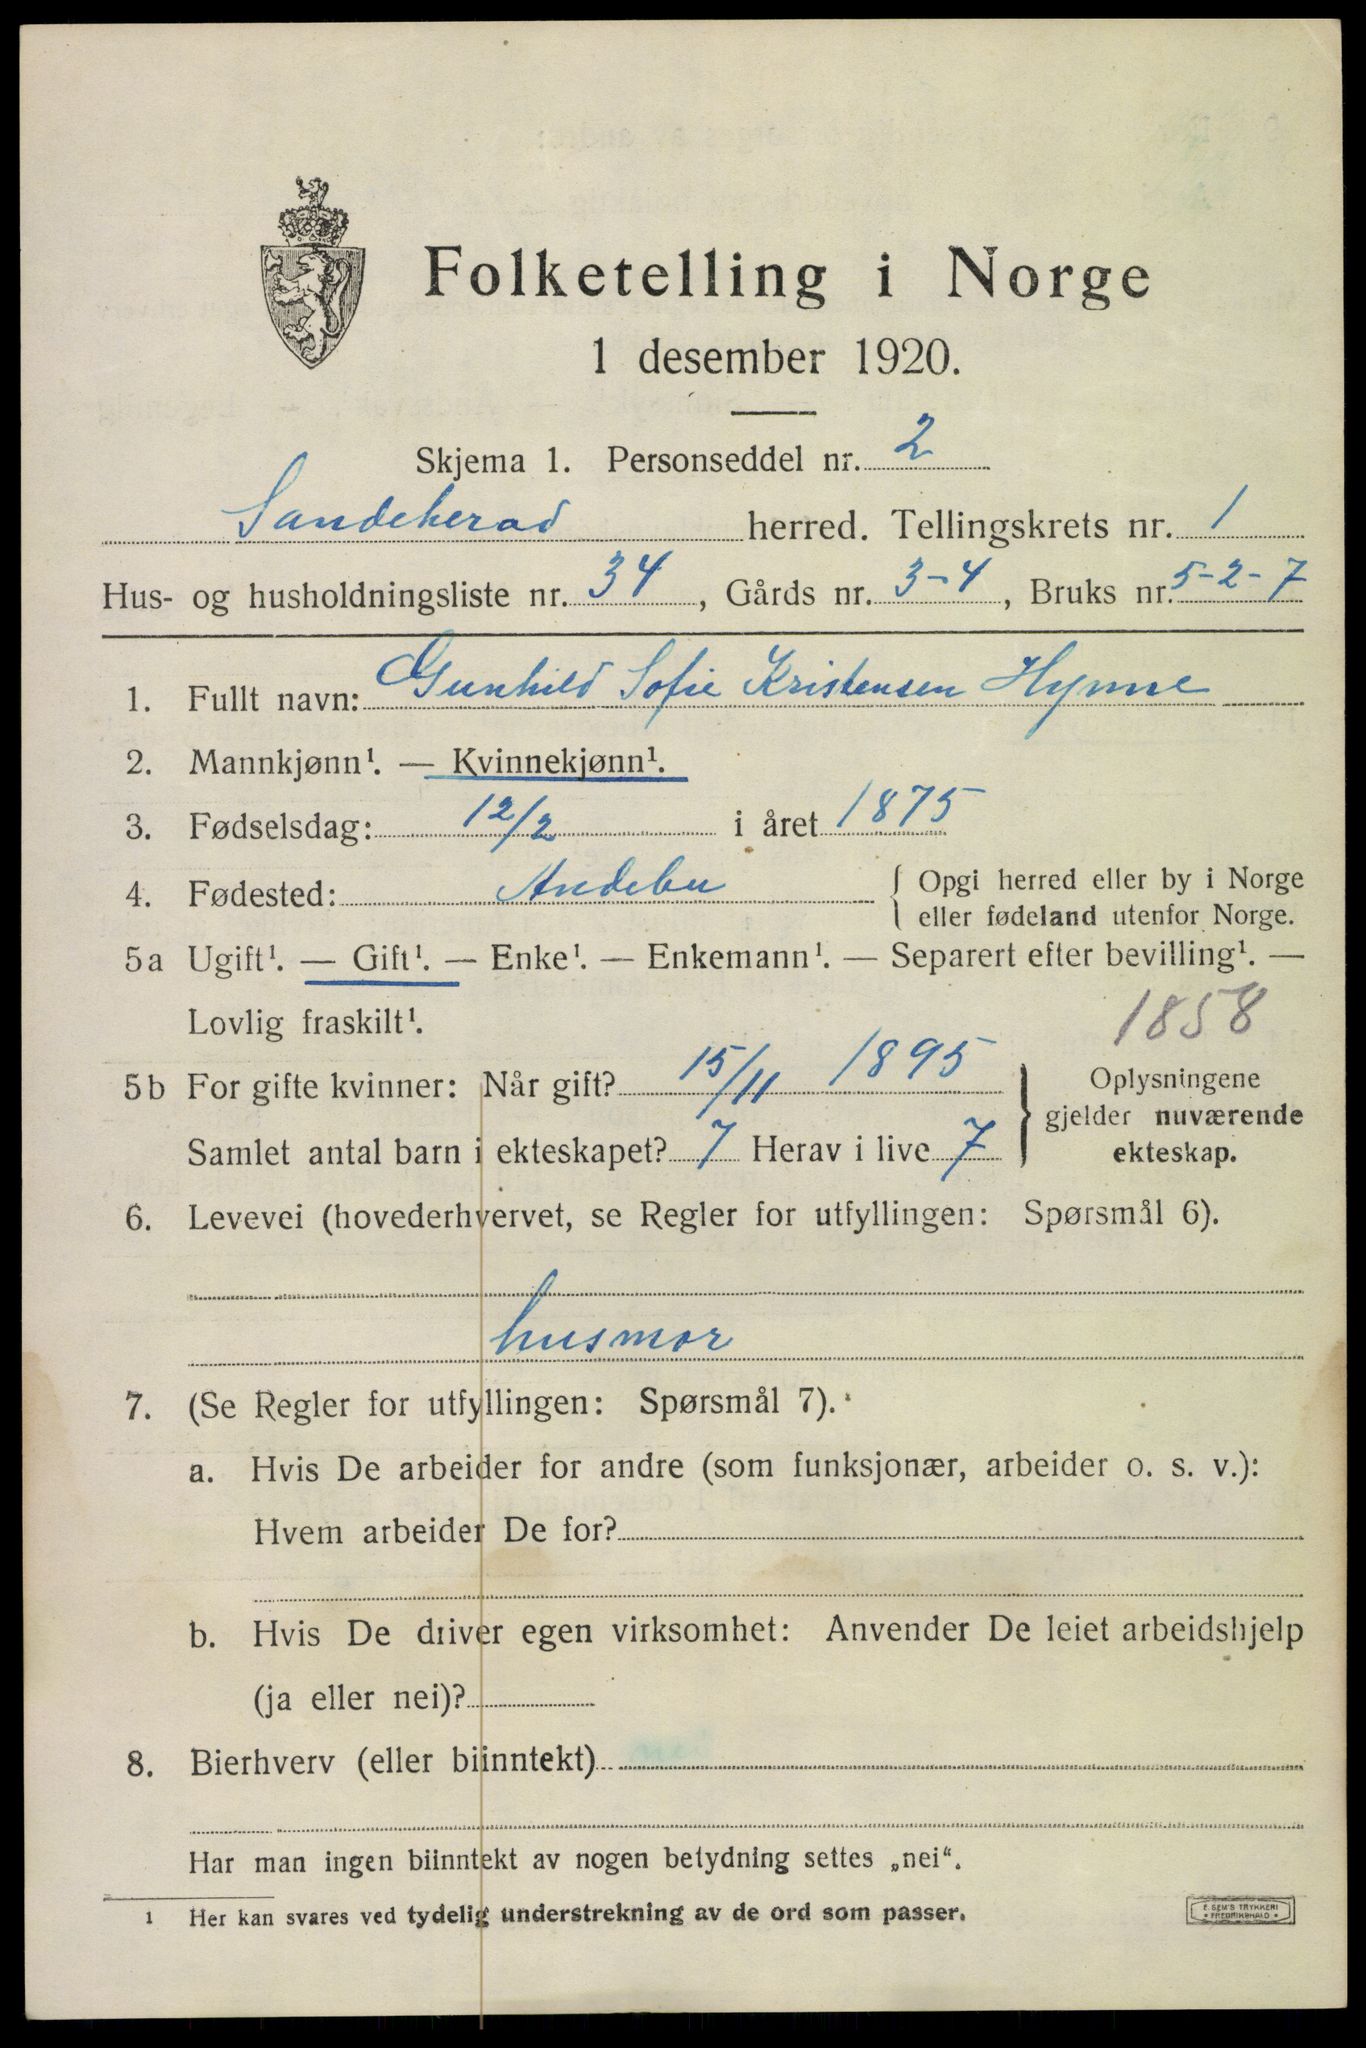 Folketelling i Norge
1 desember 1920.
Skjema 1. Personseddel nr. 2
Sandeherad herred. Tellingskrets nr. 1
Hus- og husholdningsliste nr. 34, Gårds nr. 3-4, Bruks nr. 5-2-7
1. Fullt navn: Gunhild Sofie Kristensen Hynne
2. Mannkjønn¹. — Kvinnekjønn¹.
3. Fødselsdag: 12/2 i året 1875
4. Fødested: Andebu { Opgi herred eller by i Norge
eller fødeland utenfor Norge.
5a Ugift¹. — Gift¹. — Enke¹. — Enkemann¹. — Separert efter bevilling¹. —
Lovlig fraskilt¹.
1858
5b For gifte kvinner: Når gift? 15/11 1895
Samlet antal barn i ekteskapet? 7 Herav i live 7
} Oplysningene
gjelder nuværende
ekteskap.
6. Levevei (hovederhvervet, se Regler for utfyllingen: Spørsmål 6).
husmor
7. (Se Regler for utfyllingen: Spørsmål 7).
a. Hvis De arbeider for andre (som funksjonær, arbeider o. s. v.):
Hvem arbeider De for?
b. Hvis De driver egen virksomhet: Anvender De leiet arbeidshjelp
(ja eller nei)?
8. Bierhverv (eller biinntekt)
Har man ingen biinntekt av nogen betydning settes „nei“.
1 Her kan svares ved tydelig understrekning av de ord som passer.
E. SEM'S TRYKKERI
• FREDRIKSHALD •